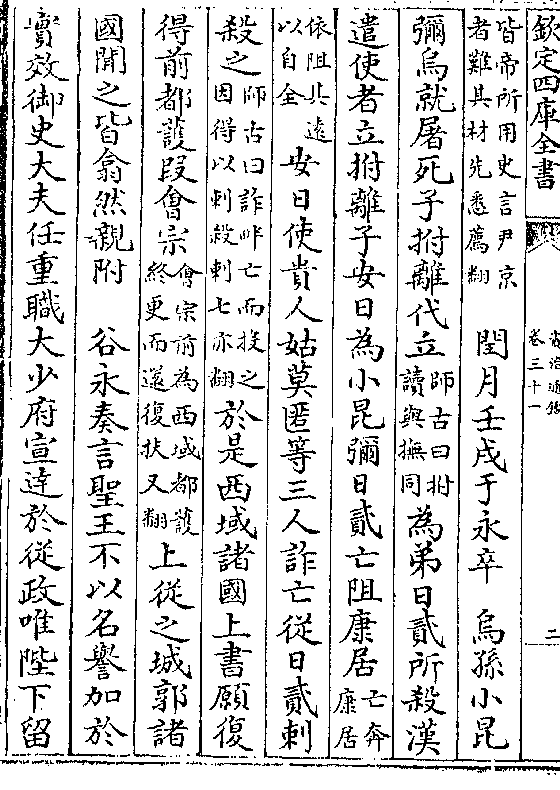 欽定四庫全書
資治通鑑
卷三十一
二
皆帝所用史言尹京
者難其材先悉薦翻
閏月壬戌于永卒　烏孫小昆
彌烏就屠死子拊離代立
師古曰拊
讀與撫同
為弟日貳所殺漢
遣使者立拊離子安日為小昆彌日貳亡阻康居
亡奔
康居
依阻其遠
以自全
安日使貴人姑莫匿等三人詐亡從日貳刺
殺之
師古曰詐畔亡而投之
因得以刺殺刺七亦翻
於是西域諸國上書願復
得前都護段會宗
會宗前為西域都護
終更而還復扶又翻
上從之城郭諸
國聞之皆翕然親附　谷永奏言聖王不以名譽加於
實效御史大夫任重職大少府宣達於從政唯陛下留